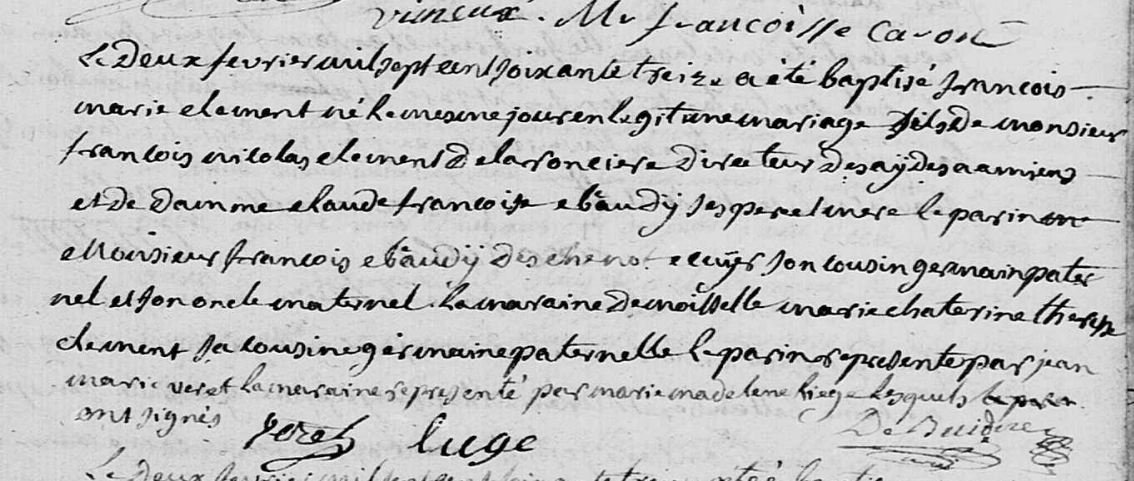 Mr francoisse caron
Le Deux fevrier mil sept cent soixante treize a été baptisé francois
marie clement né le mesme jour en legitime mariage fils De monsieur
francois nicolas clement De la ronciere Directeur Des aÿdes a amiens
et De Damme claude francoise ebaudÿ ses pere et mere le parin
Monsieur francois ebaudÿ Deschenot ecuÿr son cousin germain pater
nel et son oncle maternel la maraine Demoisselle marie chaterine therese
clement sa cousine germaine paternelle le parin representé par jean
marie veret la maraine representé par marie madelene liege lesquels
ont signés veret luge
Le Deux fevrier mil sept cent soixante treize a été